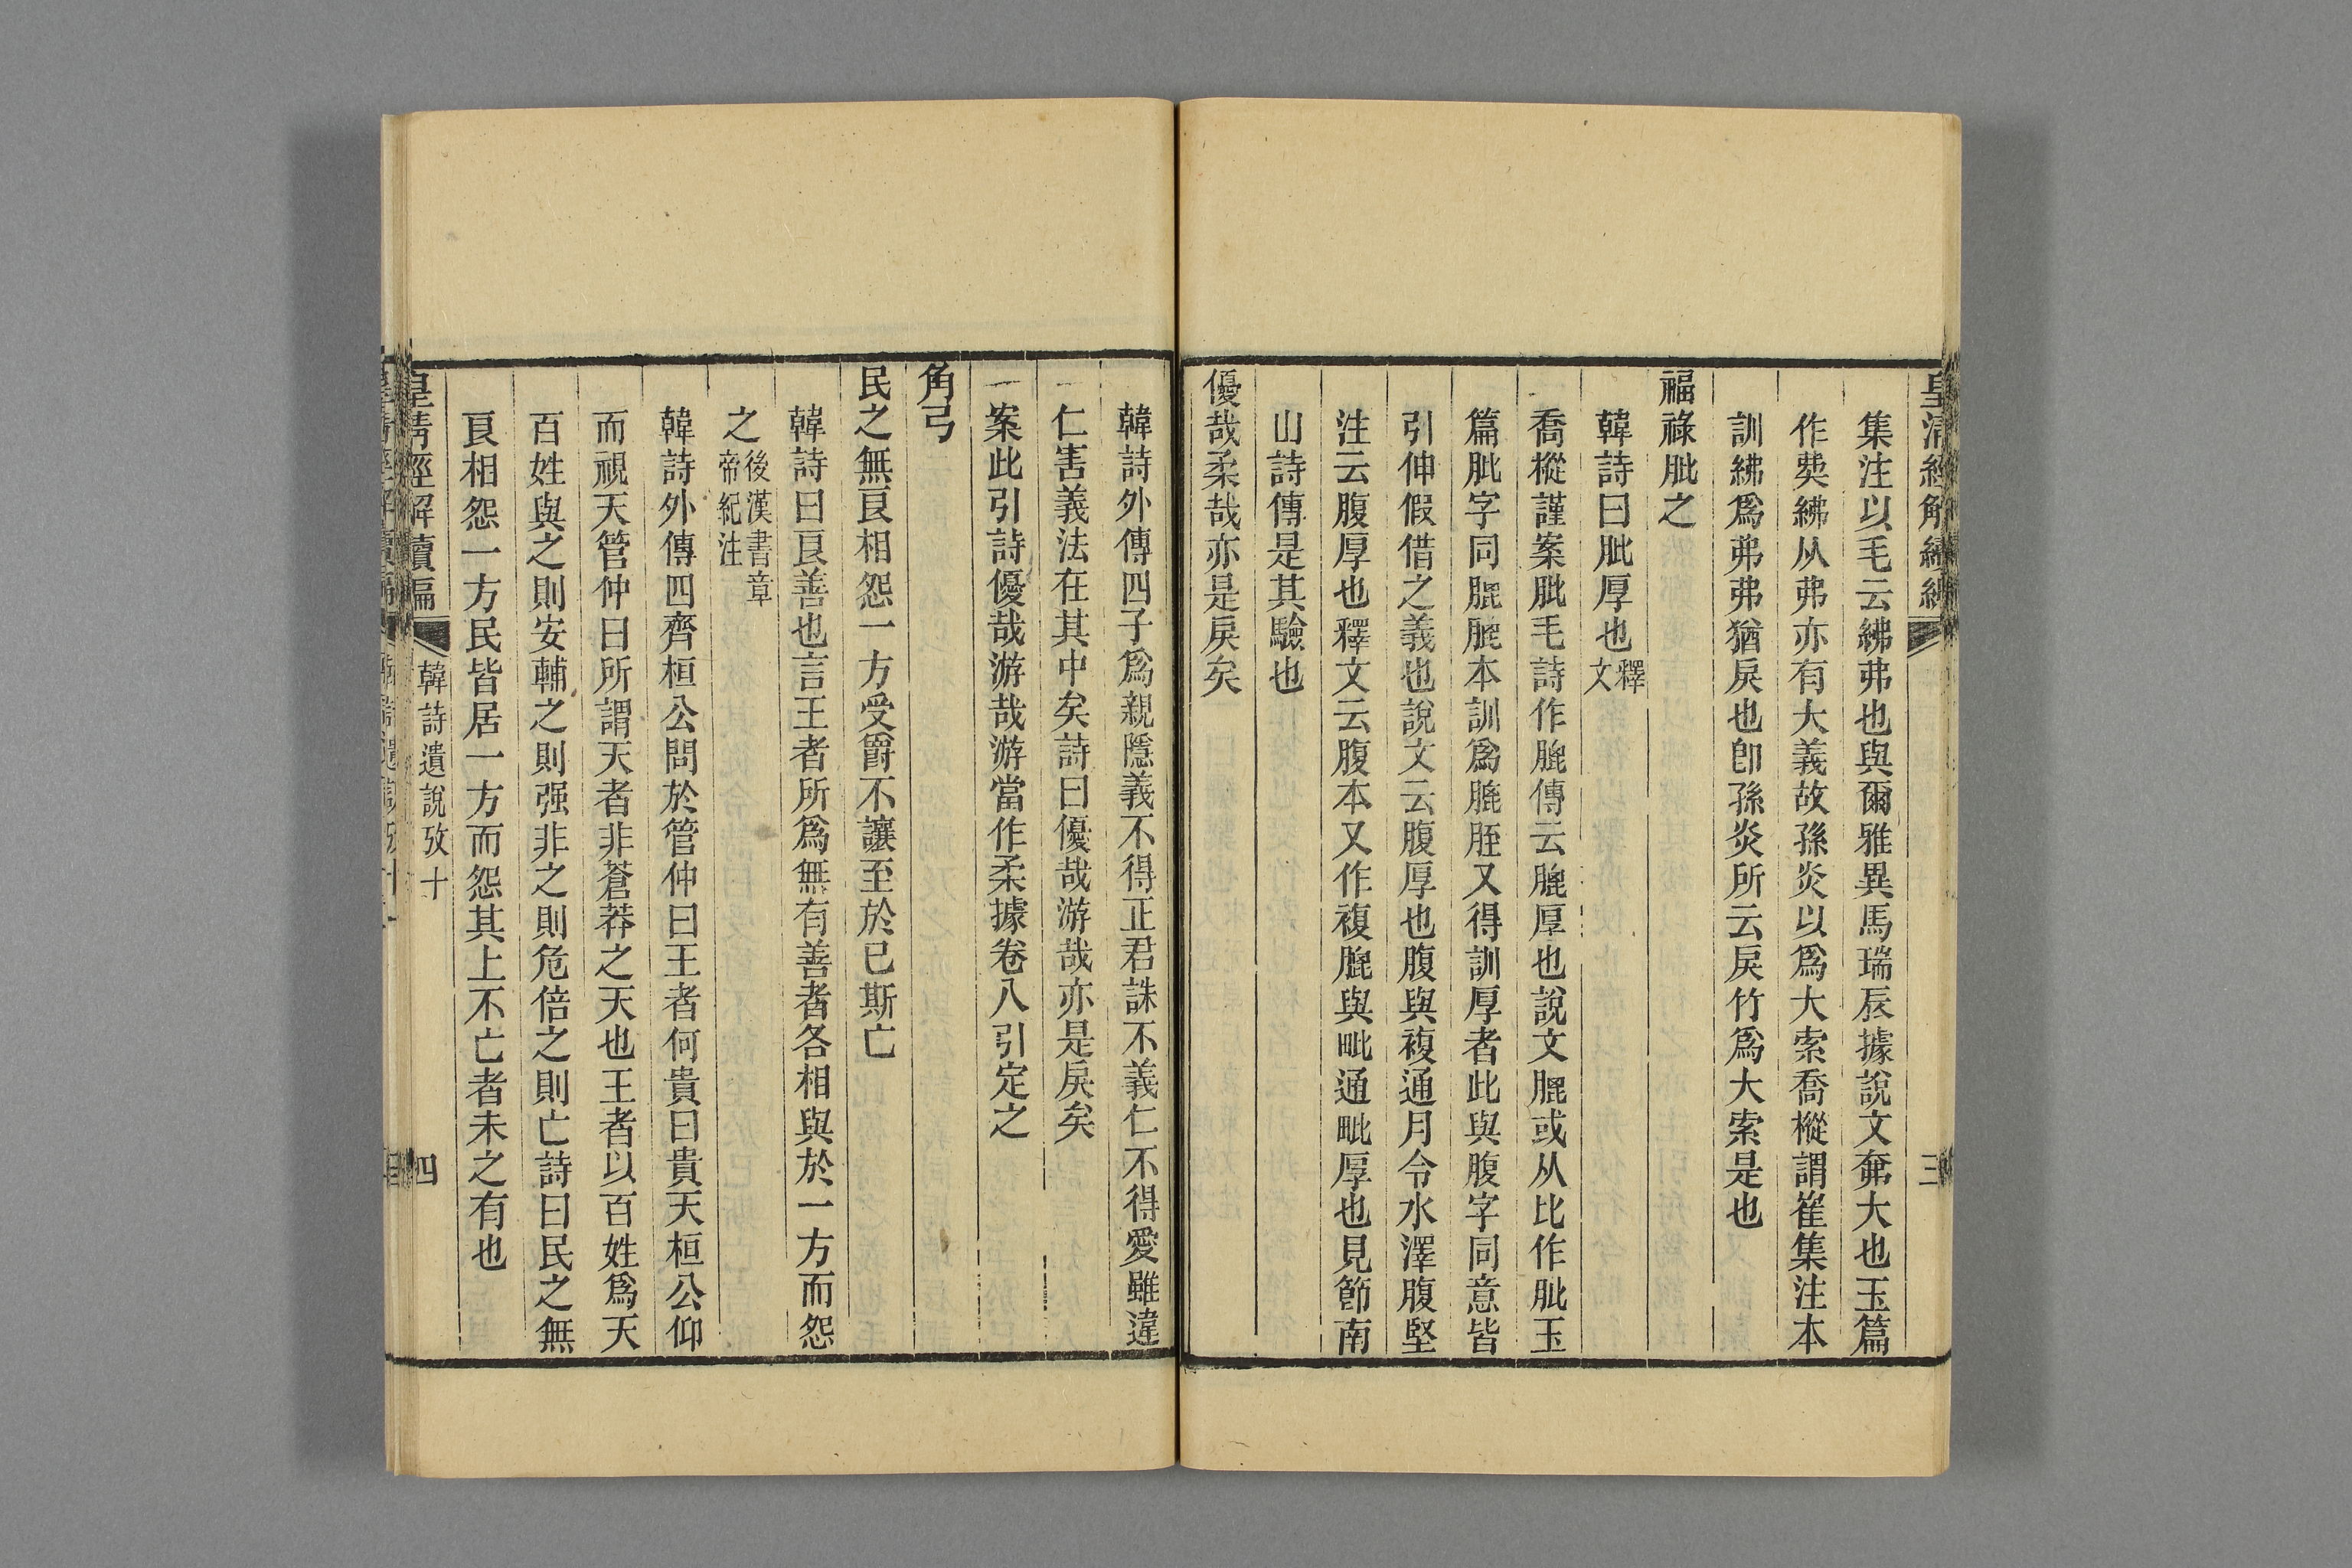 集注以毛云紼弗也與爾雅異馬瑞辰據說文奜大也玉篇
作䒦紼从弗亦有大義故孫炎以爲大索喬樅謂崔集注本
訓紼爲弗弗猶戾也卽孫炎所云戾竹爲大索是也
福祿肶之
韓詩曰肶厚也釋文
喬樅謹案肶毛詩作膍傳云膍厚也說文膍或从比作肶玉
篇肶字同膍膍本訓爲膍胵又得訓厚者此與腹字同意皆
引伸假借之義也說文云腹厚也腹與複通月令水澤腹堅
注云腹厚也釋文云腹本又作複膍與毗通毗厚也見節南
山詩傳是其驗也
優哉柔哉亦是戾矣
韓詩外傳四子爲親隱義不得正君誅不義仁不得愛雖違
仁害義法在其中矣詩曰優哉游哉亦是戾矣
案此引詩優哉游哉游當作柔據卷八引定之
角弓
民之無良相怨一方受爵不讓至於已斯亡
韓詩曰良善也言王者所爲無有善者各相與於一方而怨
之後漢書章帝紀注
韓詩外傳四齊桓公問於管仲曰王者何貴曰貴天桓公仰
而視天管仲曰所謂天者非蒼莽之天也王者以百姓爲天
百姓與之則安輔之則强非之則危倍之則亡詩曰民之無
良相怨一方民皆居一方而怨其上不亡者未之有也
皇清經解續編
韓詩遺說攷十
四